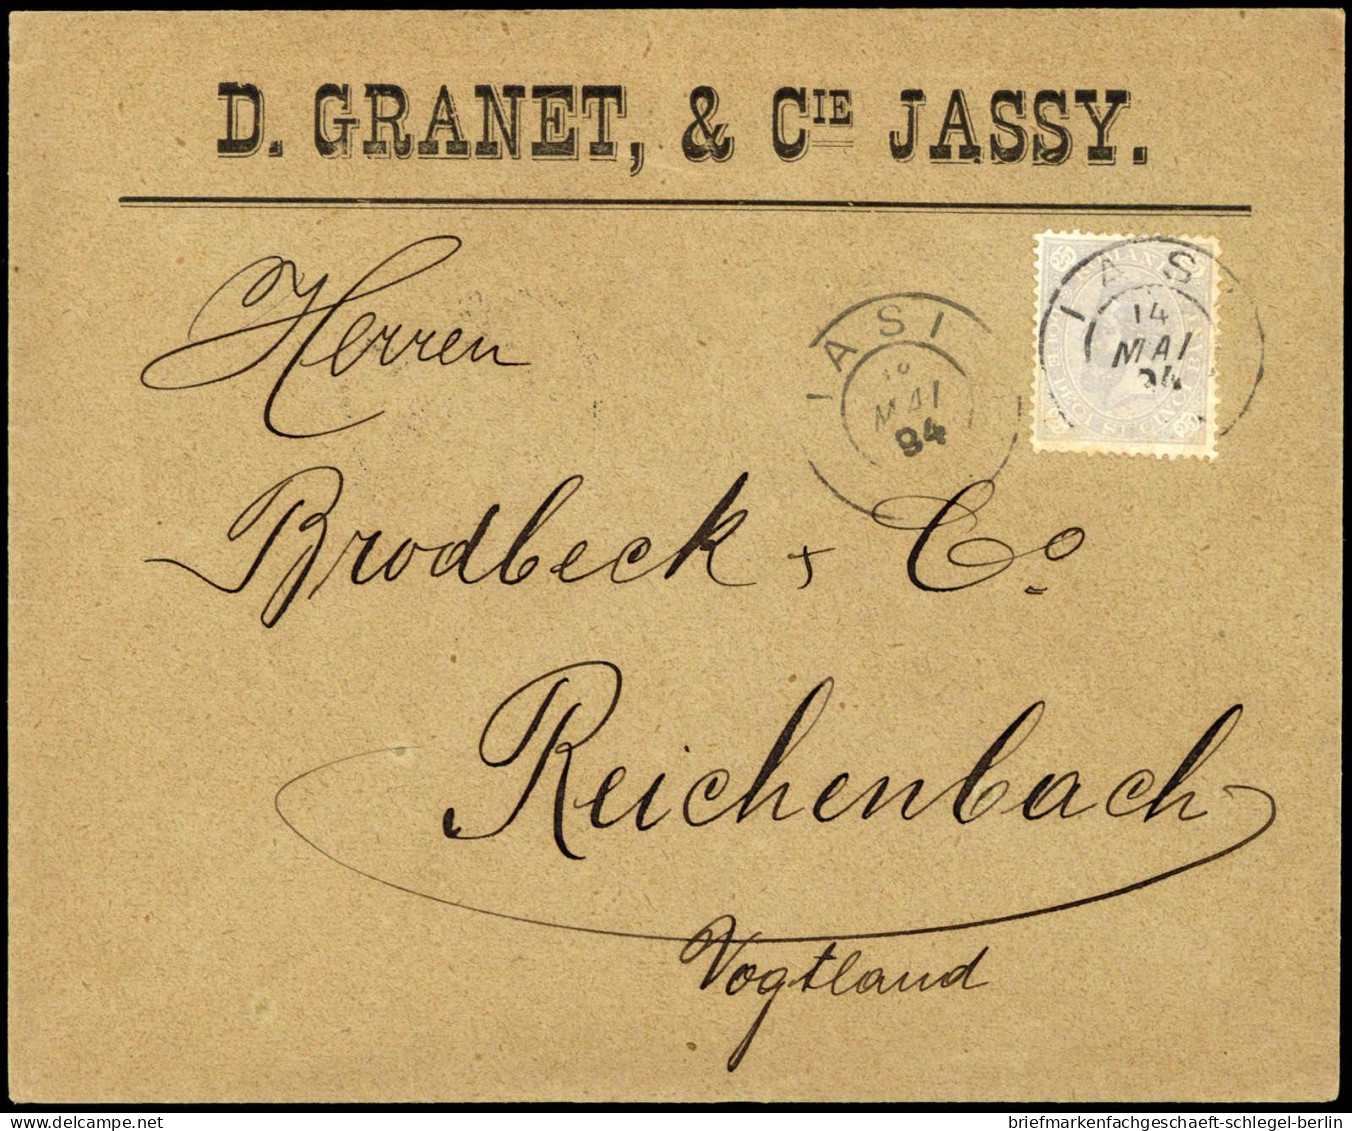 D. GRANET, & CIE JASSY.
IASI
14
MAI
IASI
MAI
94
25 25
25 25
Herren
Brodbeck + Co
Reichenbach
Vogtland
briefmarkenfachgeschaeft-schlegel-berlin